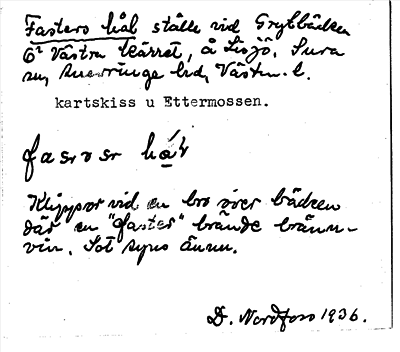 Fasters hål ställe vid Grytbäcken
G² Västra Kärret, å Lisjö, Sura
sn, Snevringe hd, Västm. l.
kartskiss u Ettermossen.
Klippor vid en bro över bäcken
där en "faster" brände bränn-
vin. Sot syns ännu.
D. Nordfors 1936.